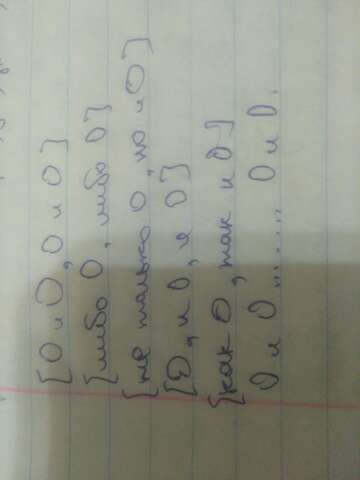 [О и О, О и О]
[либо О, либо О]
[не только О, но и О]
[О, и О, и О]
[как О, так и О]
О и О......, О и О.